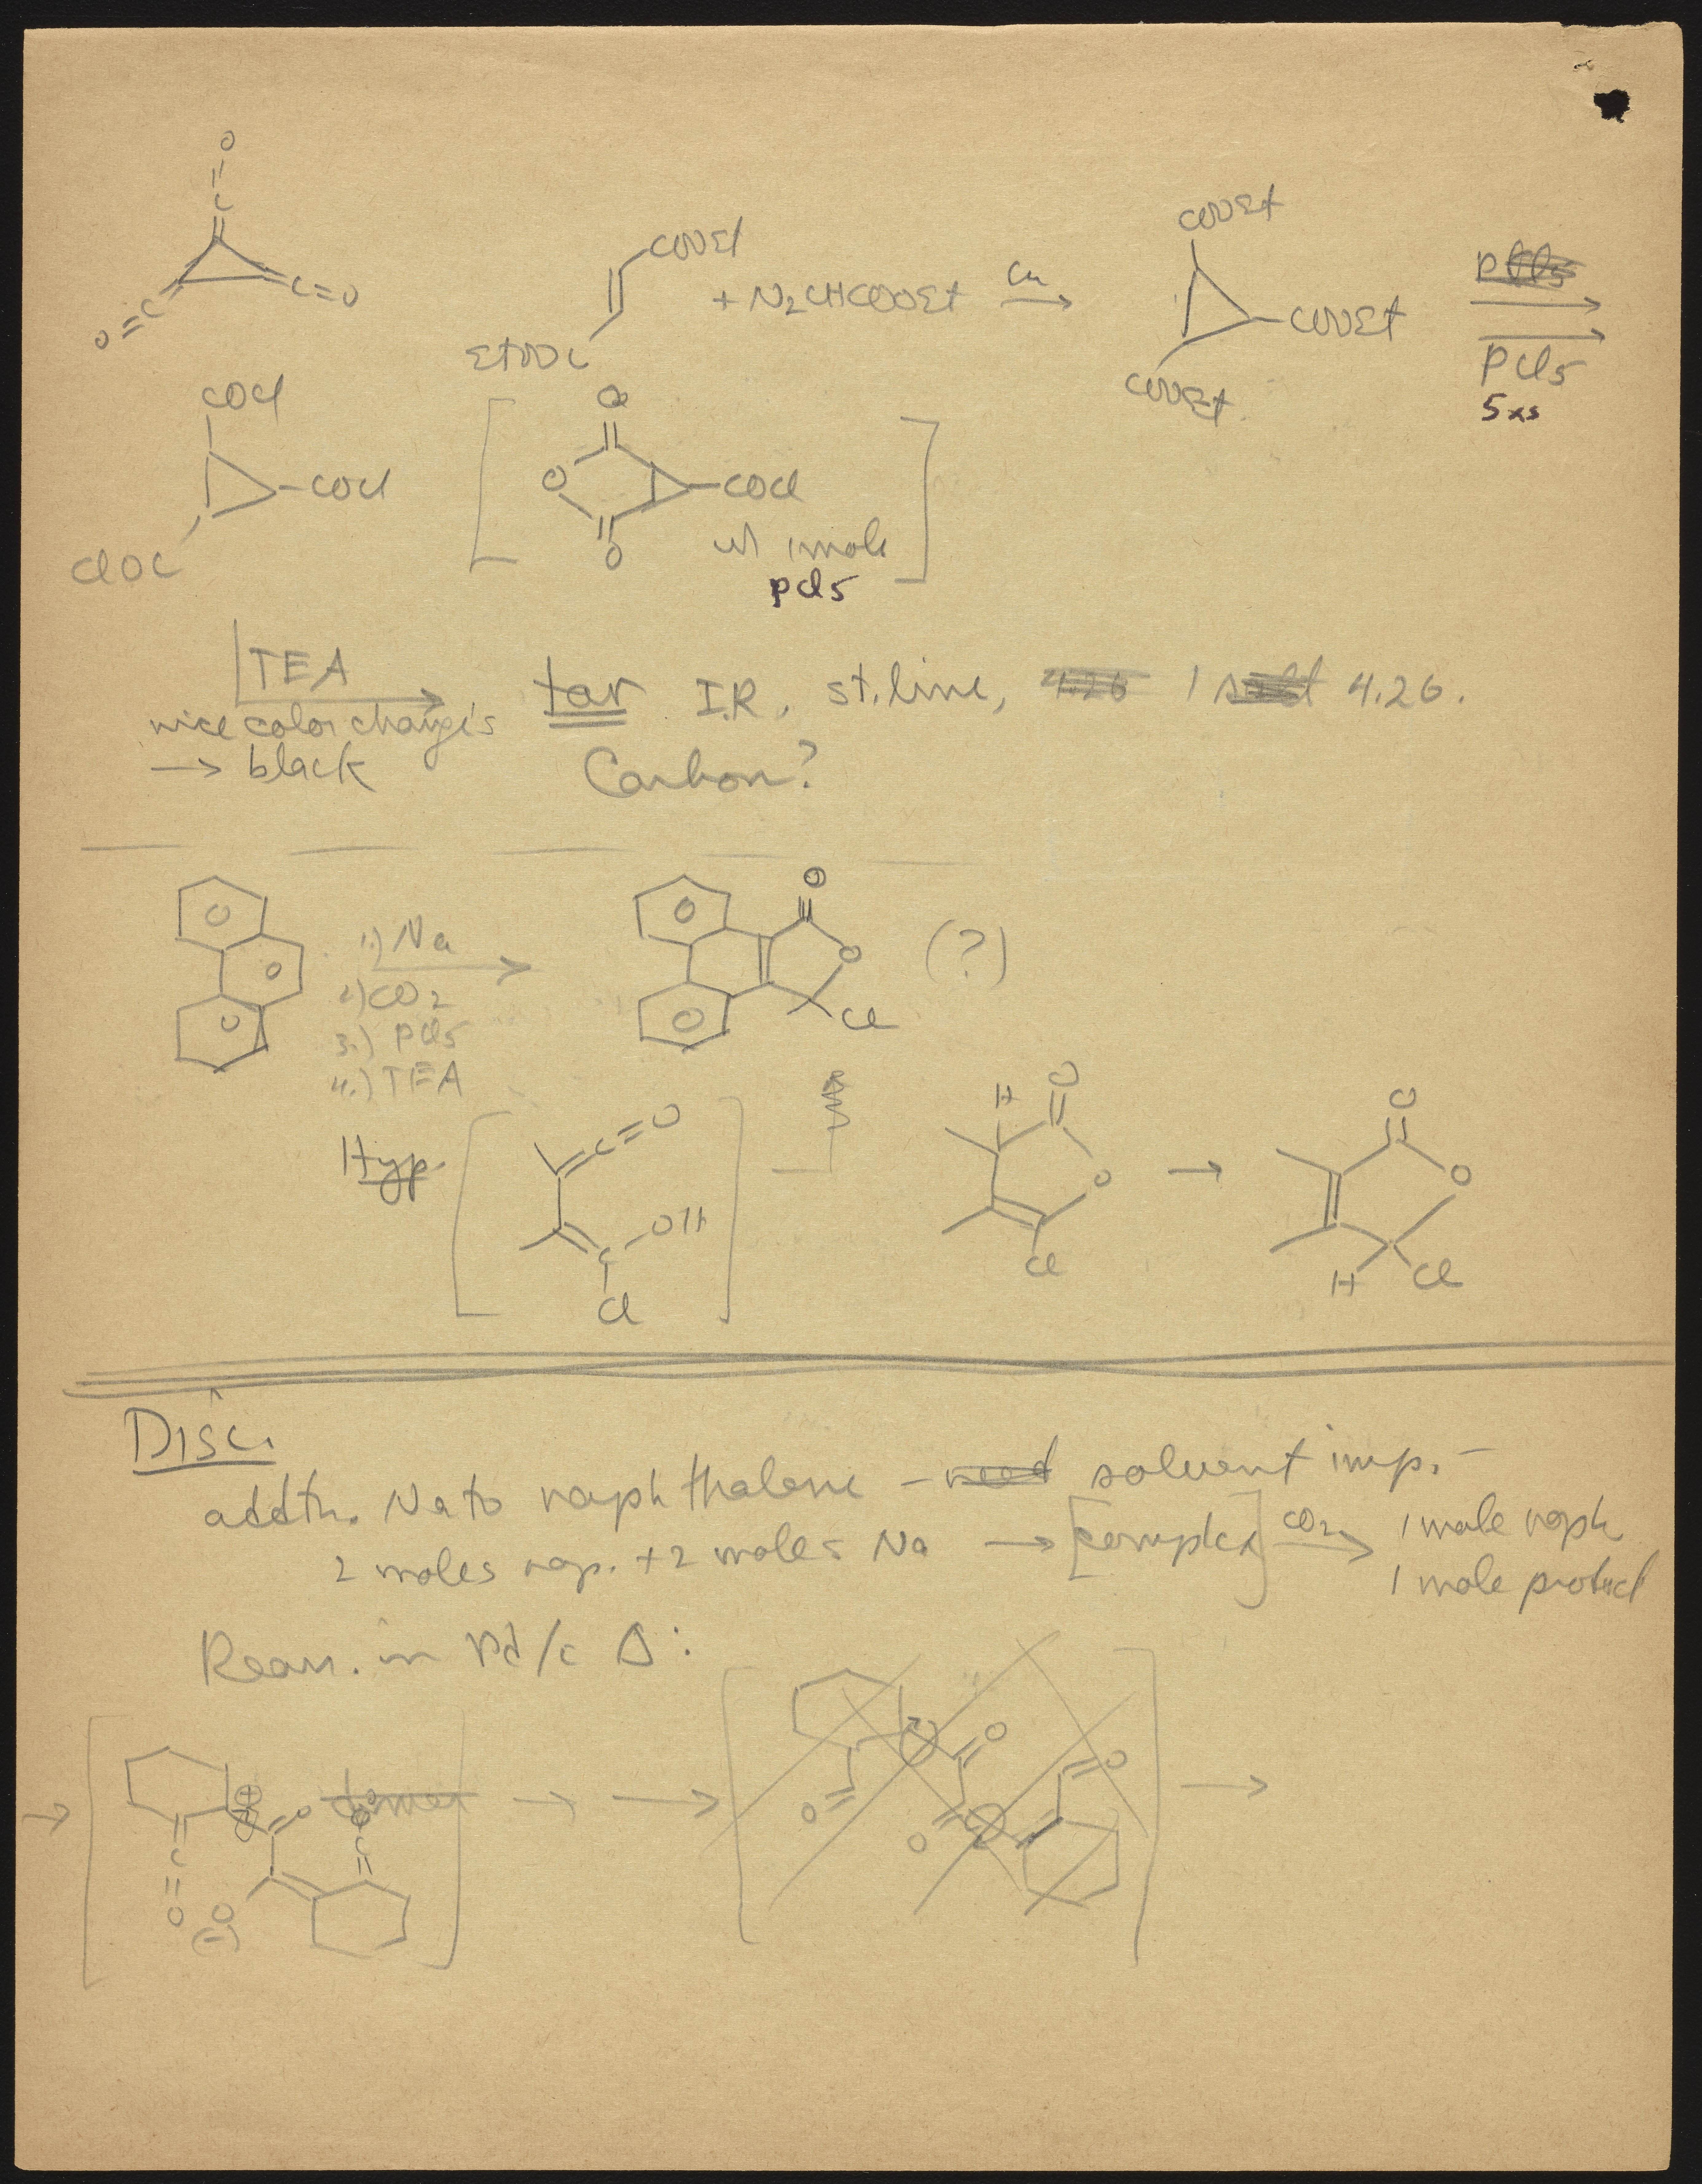 O
||
C
C=O
O=C
COOEt
EtOOC
+ N2CHCOOEt
Cu
COOEt
COOEt
COOEt
PCl5
PCl5
5xs
COCl
COCl
ClOC
O
O
O
COCl
w/ 1 mole
PCl5
TEA
nice color change's
→ black
tar I.R. st. line, 4.26 1 4.26.
Carbon?
1.) Na
2.) CO2
3.) PCl5
4.) TEA
O
O
Cl
(?)
Hyp.
C=O
C
OH
Cl
H
O
O
Cl
→
O
O
H
Cl
Disc.
addtn. Na to naphthalene - need solvent imp. -
2 moles nap. + 2 moles Na → [complex] CO2 → 1 mole naph
1 mole product
Rearr. in Pd/c Δ:
→
C
O
O
O
(-)
dimer
O
C
→ →
O
O
O
O
→